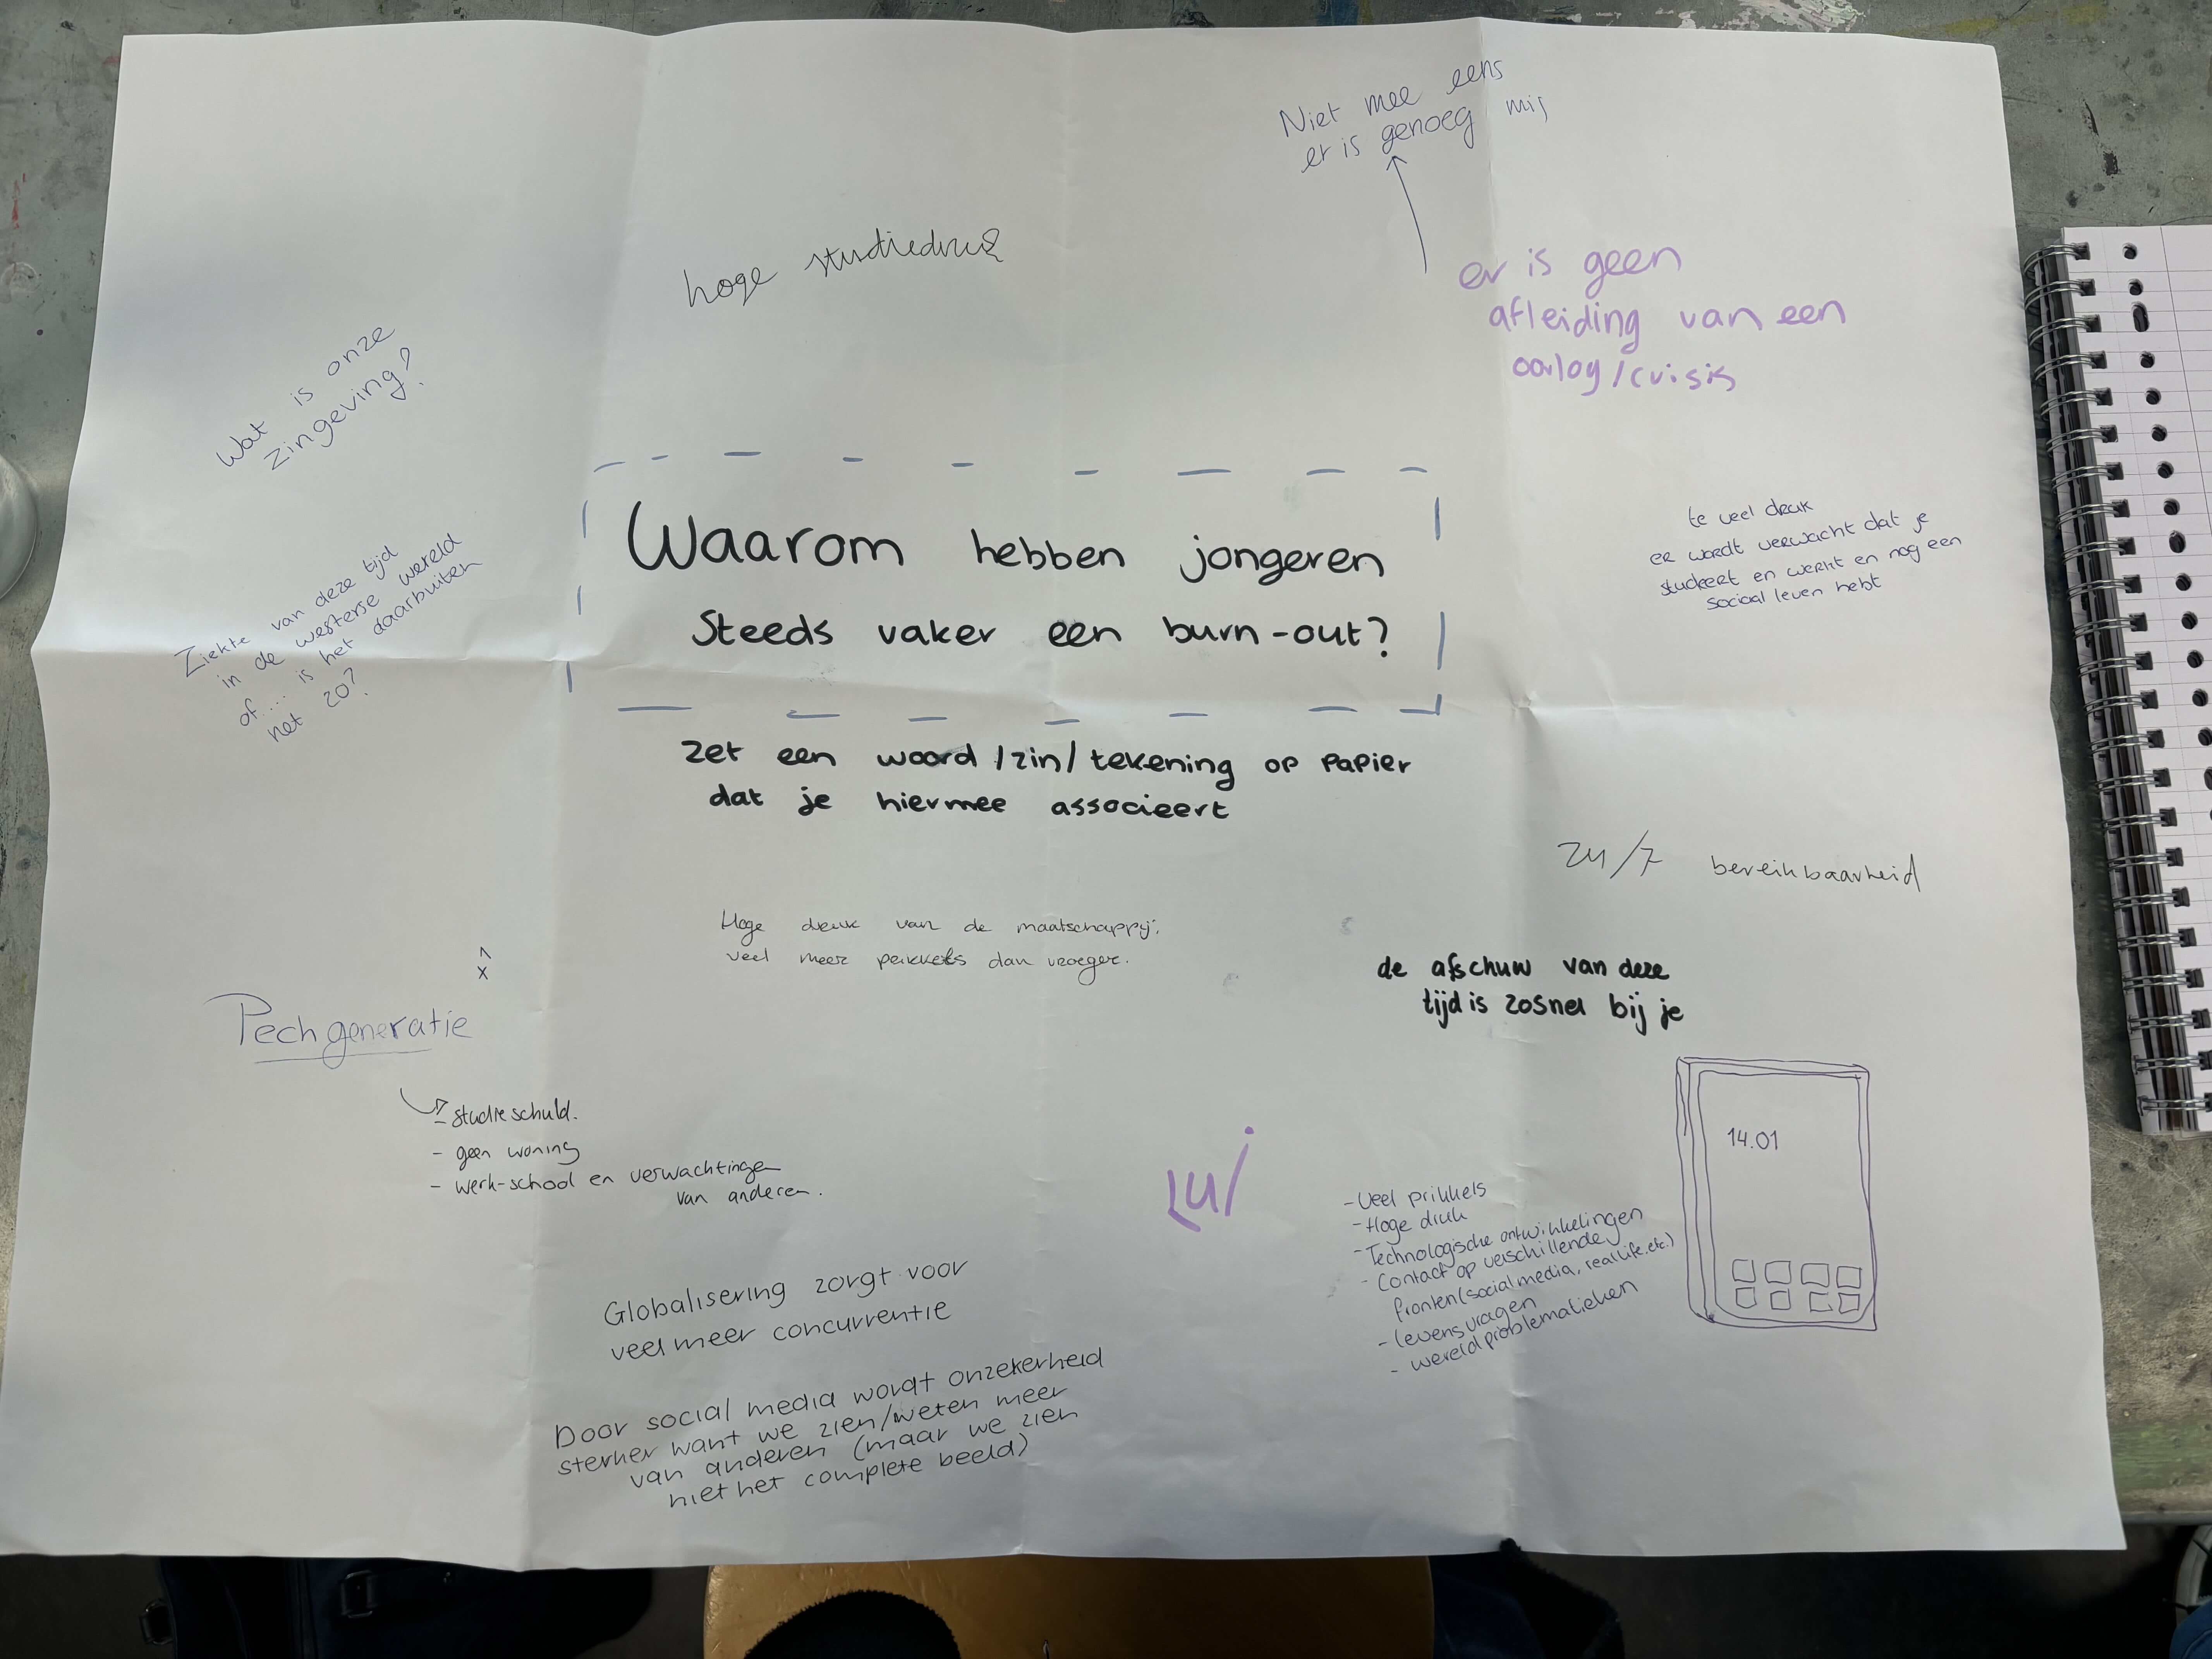 Niet mee eens
er is genoeg mis
hoge studiedruk
er is geen
afleiding van een
oorlog/crisis
Wat is onze
zingeving?
Waarom hebben jongeren
steeds vaker een burn-out?
te veel druk
er wordt verwacht dat je
studeert en werkt en nog een
sociaal leven hebt
Ziekte van deze tijd
in de westerse wereld
of... is het daarbuiten
net zo?
zet een woord/zin/tekening op papier
dat je hiermee associeert
24/7 bereikbaarheid
Hoge druk van de maatschappij;
veel meer prikkels dan vroeger.
de afschuw van deze
tijd is zo snel bij je
^
x
Pechgeneratie
- studieschuld.
- geen woning
- werk-school en verwachtingen
van anderen.
14.01
Lui
- Veel prikkels
- Hoge druk
- Technologische ontwikkelingen
- Contact op verschillende
fronten (social media, real life, etc.)
- levensvragen
- wereldproblematieken
Globalisering zorgt voor
veel meer concurrentie
Door social media wordt onzekerheid
sterker want we zien/weten meer
van anderen (maar we zien
niet het complete beeld)